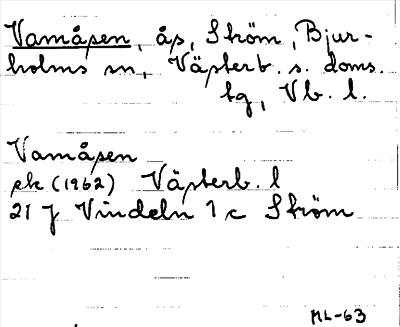 Vamåsen, ås, Ström, Bjur-
holms sn, Västerb. s. doms.
tg, Vb. l.
Vamåsen
ek (1962) Västerb. l
21 J Vindeln 1 c Ström
ML-63